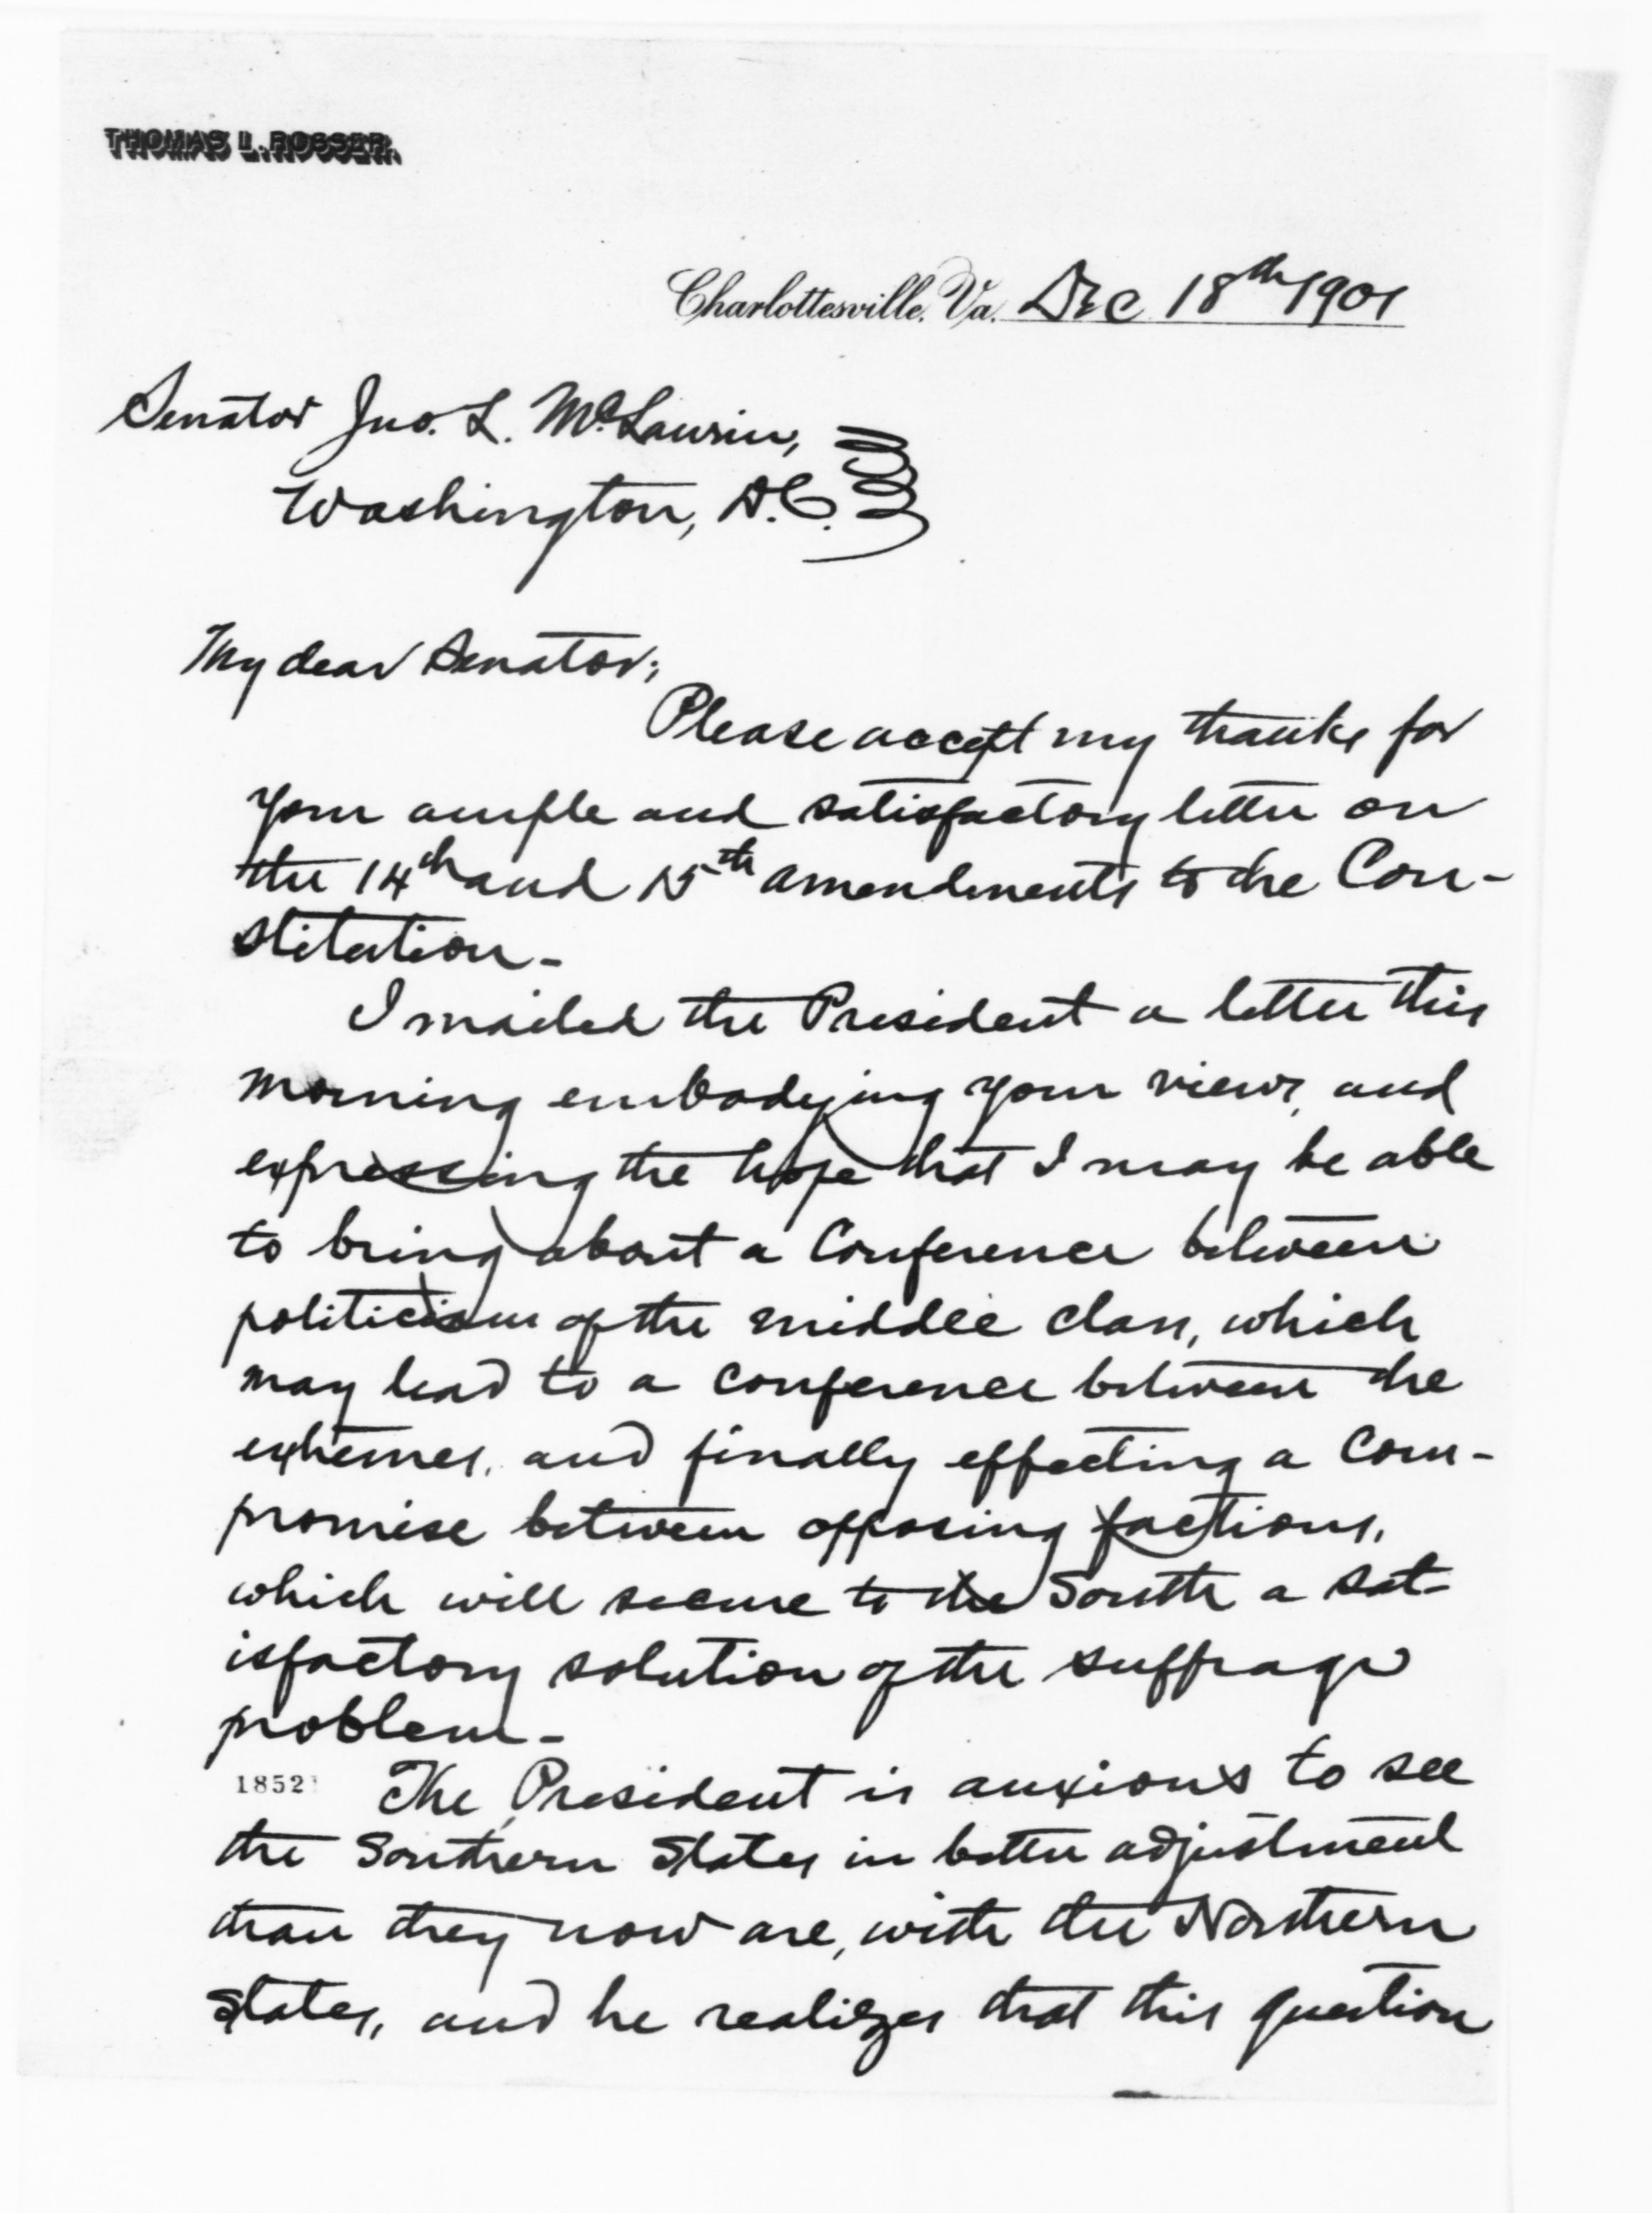 THOMAS L. ROSSER.
Charlottesville, Va. Dec 18th 1901
Senator Jno. L. McLaurin,
Washington, D.C.
My dear Senator;
Please accept my thanks for
your ample and satisfactory letter on
the 14th and 15th amendments to the Con-
stitution-
I mailed the President a letter this
morning embodying your views, and
expressing the hope that I may be able
to bring about a Conference between
politicians of the middle class, which
may lead to a conference between the
extremes, and finally effecting a Com-
promise between opposing factions,
which will secure to the South a sat-
isfactory solution of the suffrage
problem-
1852
The President is anxious to see
the Southern States in better adjustment
than they now are, with the Northern
States, and he realizes that this question